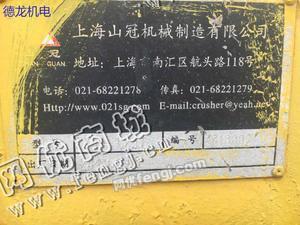 德龙机电
上海山冠机械制造有限公司
冠
GUAN
地址：上海 南汇区航头路118号
电话：021-68221278
传真：021-68221279
Http://www.021sg.com
E-mail:crusher@yeah.net
型
编号
出
网优商场
www.fengj.com
网优fengj.com